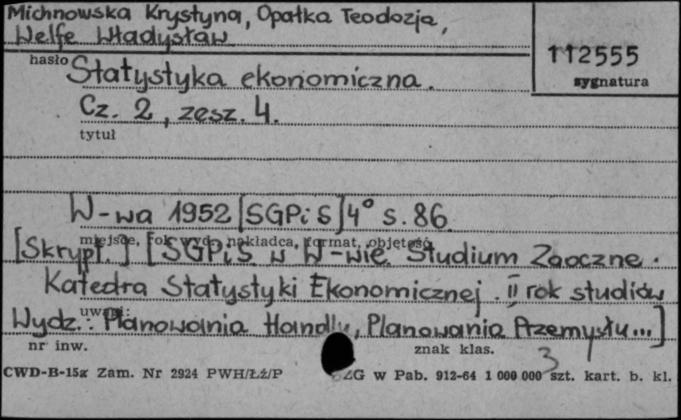 Michnowska Krystyna, Opałka Teodozja,
Welfe Władysław
112555
hasło
sygnatura
Statystyka ekonomiczna.
Cz. 2, zesz. 4.
tytuł
W-wa 1952 [SGPiS] 4° s. 86.
miejsce, rok wyd., nakładca, format, objętość
[Skrypt.] [SGPiS w W-wie. Studium Zaoczne.
Katedra Statystyki Ekonomicznej. II rok studiów
uwagi:
Wydz.: Planowania Handlu, Planowania Przemysłu...]
nr inw.
znak klas.
3
CWD-B-15g Zam. Nr 2924 PWH/Łż/P ZG w Pab. 912-64 1 000 000 szt. kart. b. kl.